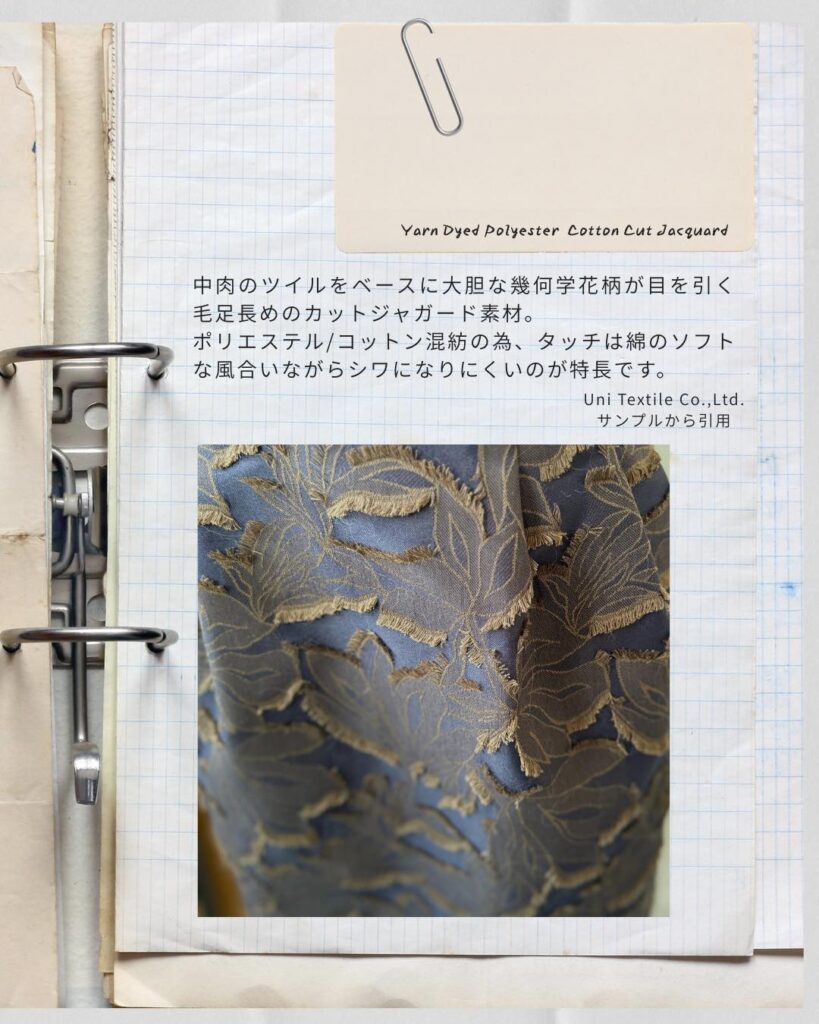 Yarn Dyed Polyester Cotton Cut Jacquard
中肉のツイルをベースに大胆な幾何学花柄が目を引く
毛足長めのカットジャガード素材。
ポリエステル/コットン混紡の為、タッチは綿のソフト
な風合いながらシワになりにくいのが特長です。
Uni Textile Co.,Ltd.
サンプルから引用